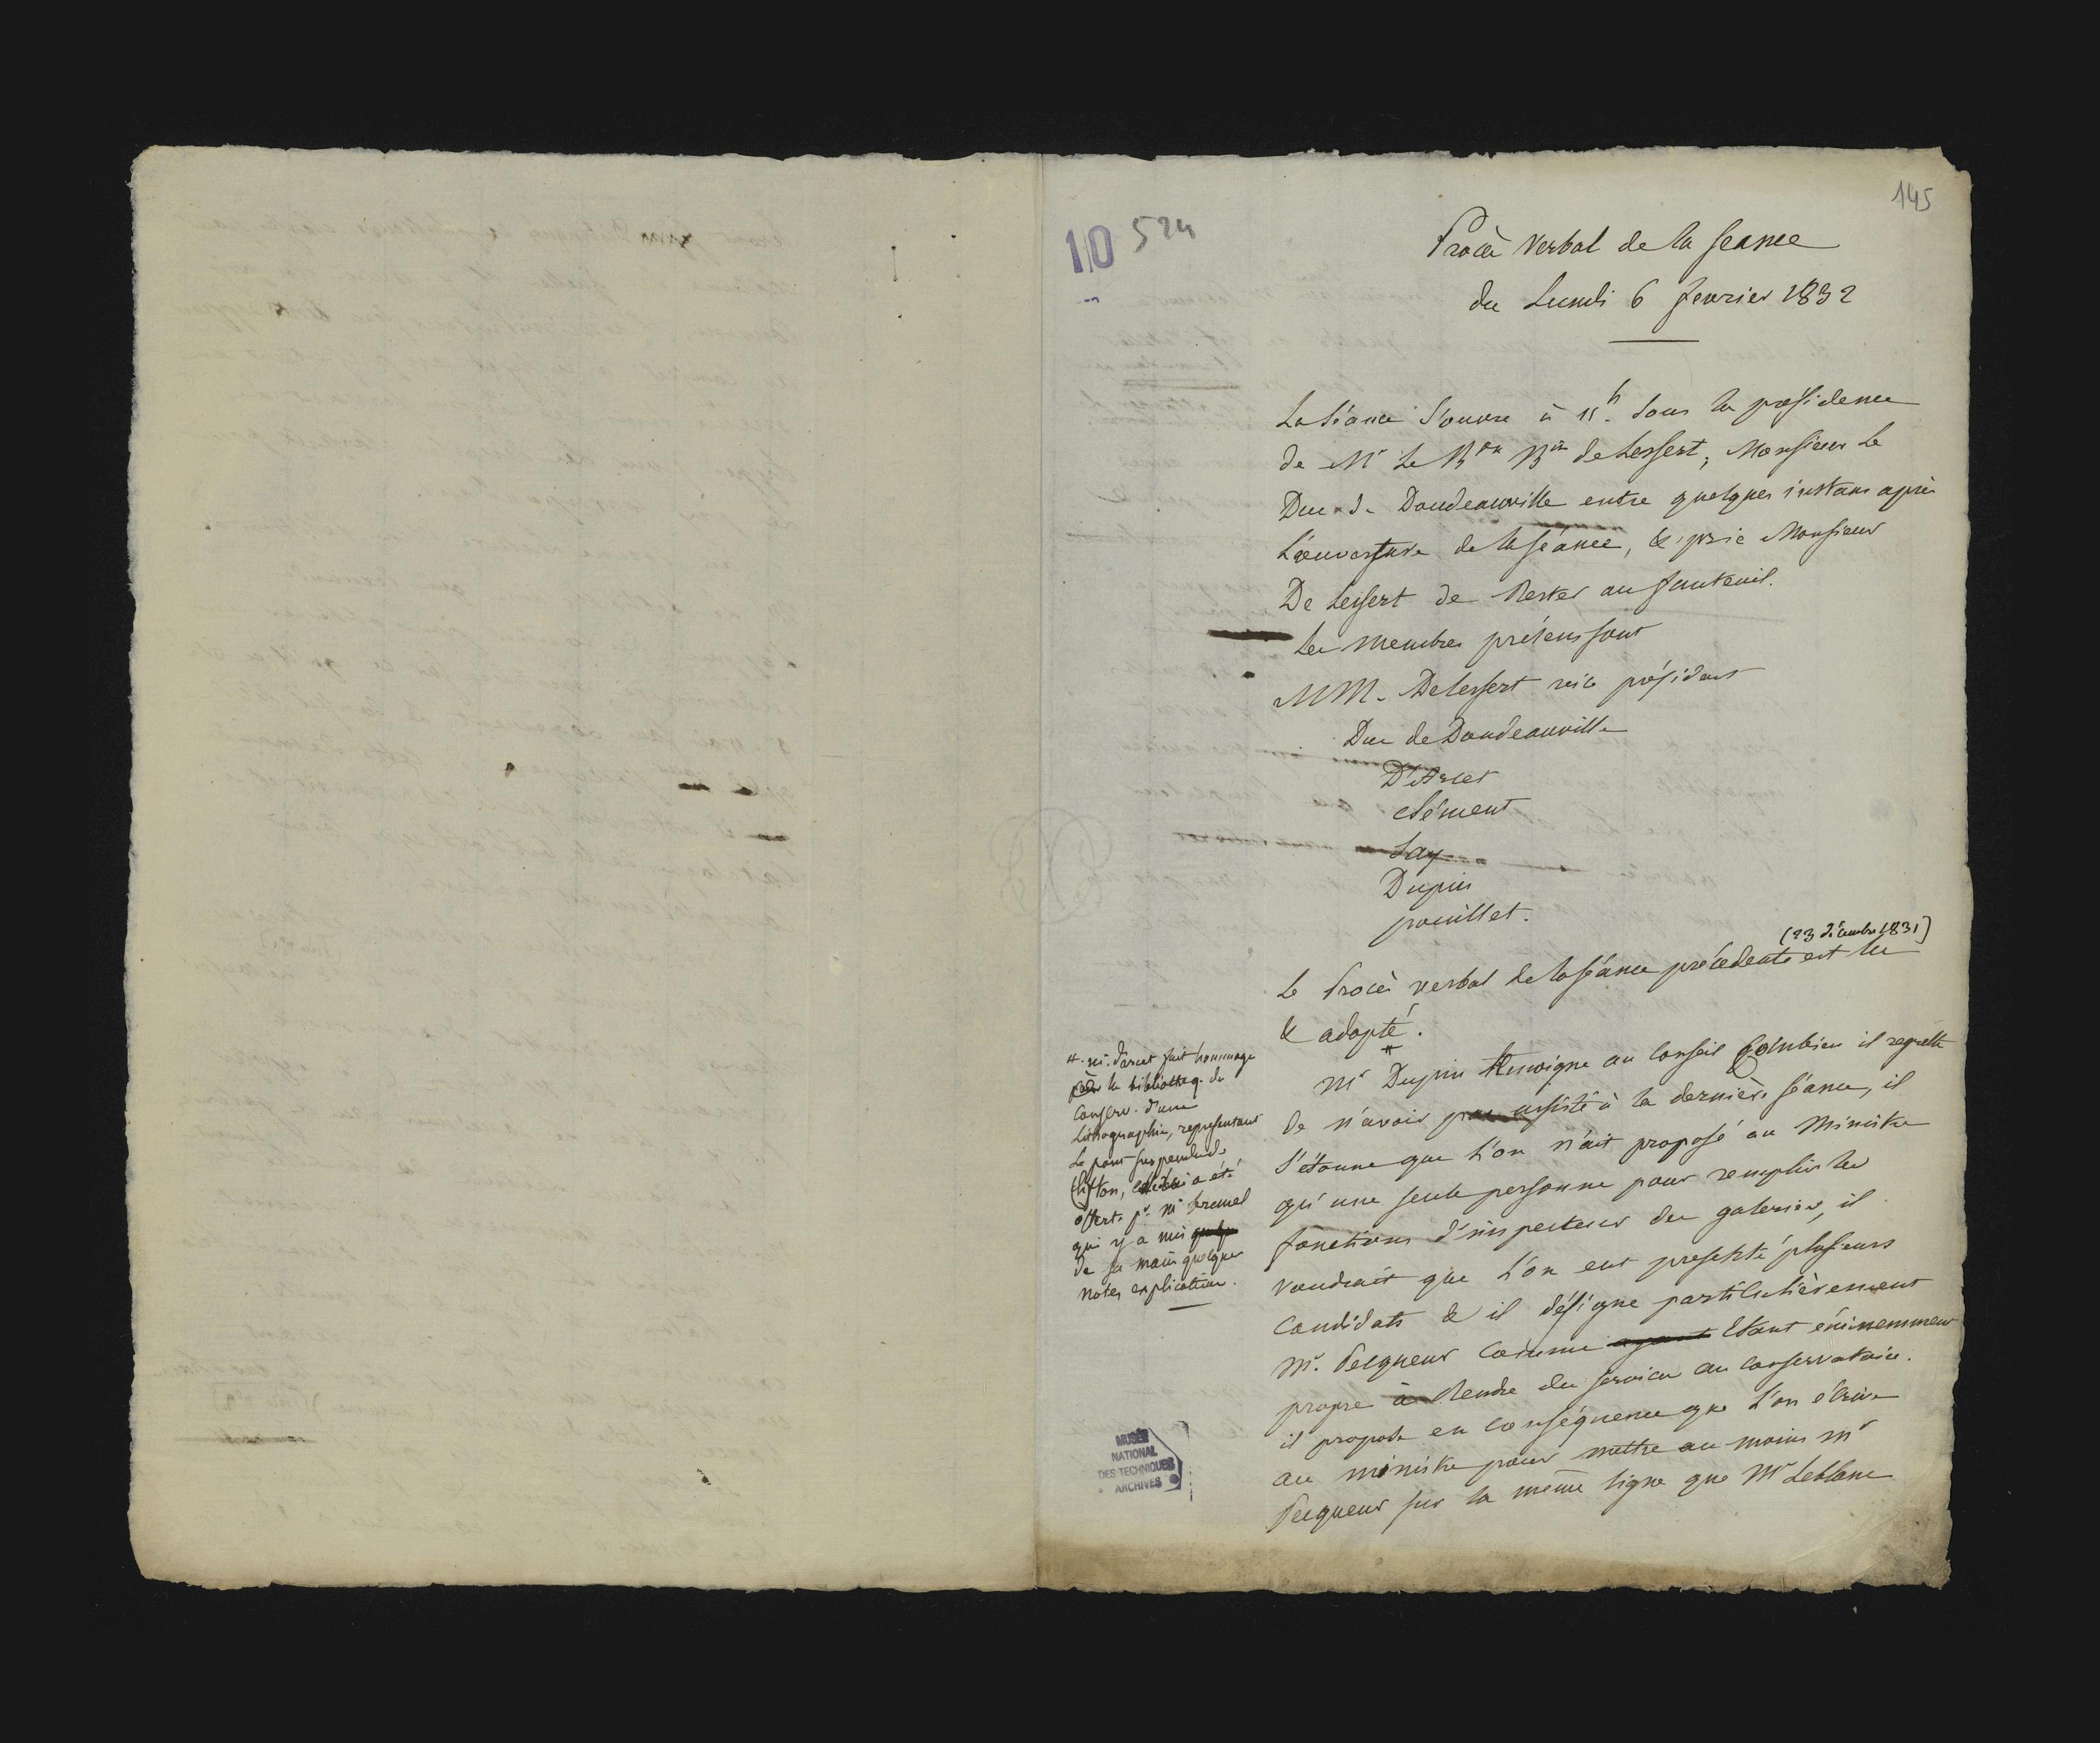 145
10 524
Procès verbal de la seance
du Lundi 6 fevrier 1832
La séance s'ouvre à 11h. sous la présidence
de Mr Le Bon Bin de Lessert, Monsieur le
Duc de Doudeauville entre quelques instans après
L'ouverture de la séance, & prie Monsieur
De Lessert de Rester au fauteuil.
Les membres présens sont
MM. Delessert vice président
Duc de Doudeauville
D'Arcet
Clément
Say
Dupin
pouillet.
(23 décembre 1831)
Le Procès verbal de la séance précédente est lu
& adopté.
#
Mr Dupin temoigne au conseil combien il regrette
de n'avoir pas assisté à la dernière séance, il
s'étonne que l'on n'ait proposé au Ministre
qu'une seule personne pour remplir les
fonctions d'inspecteur des galeries, il
voudrait que l'on eut présenté plusieurs
candidats & il désigne particulièrement
Mr. Pecqueur comme ayant Etant éminemment
propre à Rendre des services au conservatoire.
il propose en conséquence que l'on écrive
au ministre pour mettre au moins Mr
Pecqueur sur la même ligne que Mr Leblanc
# Mr. Darcet fait hommage
pour la bibliotheq. du
Conserv. d'une
Lithographie, representant
Le pont suspendu de
Clifton, qui lui a été
offert pr. Mr brunel
qui y a mis quelq
de sa main quelques
notes explicatives.
MUSÉE
NATIONAL
DES TECHNIQUES
ARCHIVES